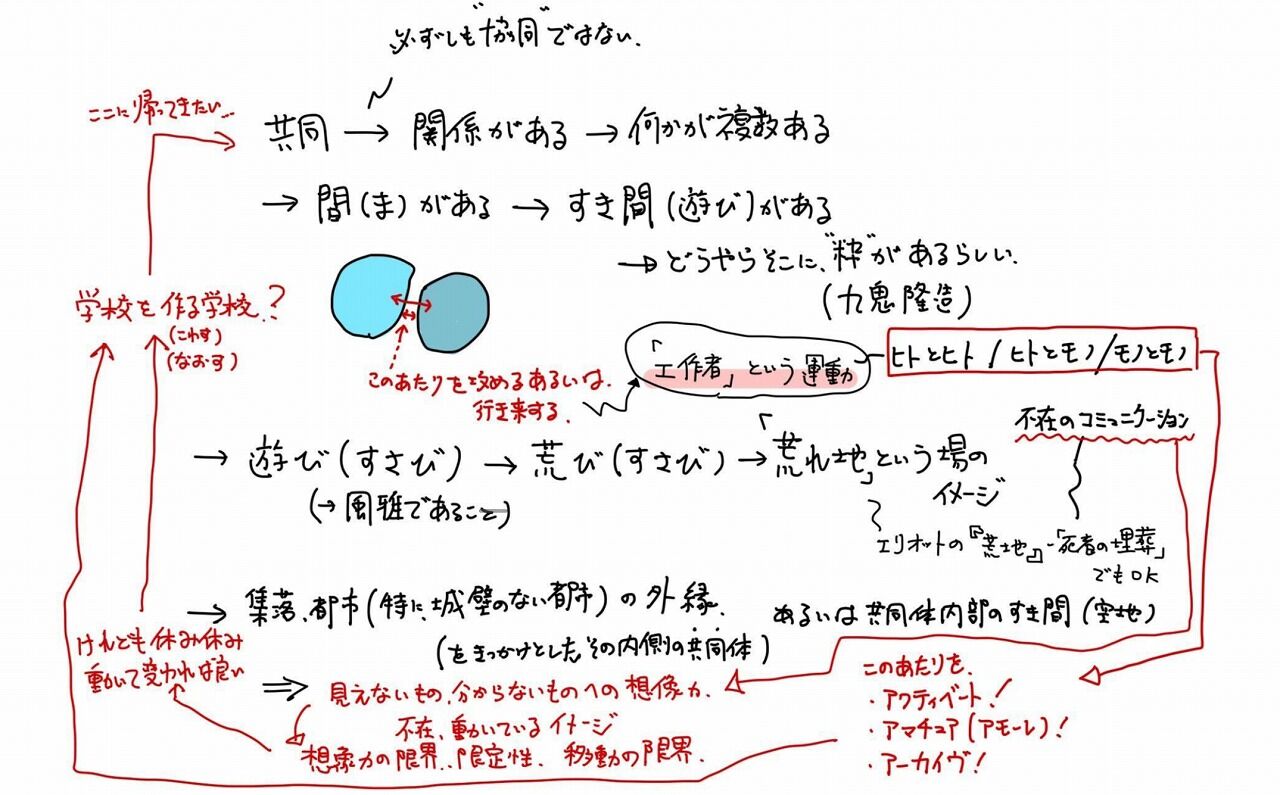 必ずしも"協同"ではない.
ここに帰ってきたい...
共同 → 関係がある → 何かが複数ある
→ 間(ま)がある → すき間(遊び)がある
→ どうやらそこに、"粋"があるらしい.
(九鬼隆造)
学校を作る学校.?
(こわす)
(なおす)
「工作者」という運動
ヒトとヒト / ヒトとモノ / モノとモノ
このあたりを攻めるあるいは.
行き来する.
不在のコミュニケーション
→ 遊び(すさび) → 荒び(すさび) → 「荒れ地」という場の
イメージ
(→風雅であること)
エリオットの『荒地』-「死者の埋葬」
でもOK
→ 集落、都市(特に城壁のない都市)の外縁.
あるいは共同体内部のすき間(空地)
(をきっかけとした、その内側の共同体)
けれども休み休み
動いて
ば良い
⇒ 見えないもの、分からないものへの想像力.
不在、動いているイメージ
想像力の限界、限定性、移動の限界.
このあたりを、
・アクティベート!
・アマチュア(アモーレ)!
・アーカイヴ!